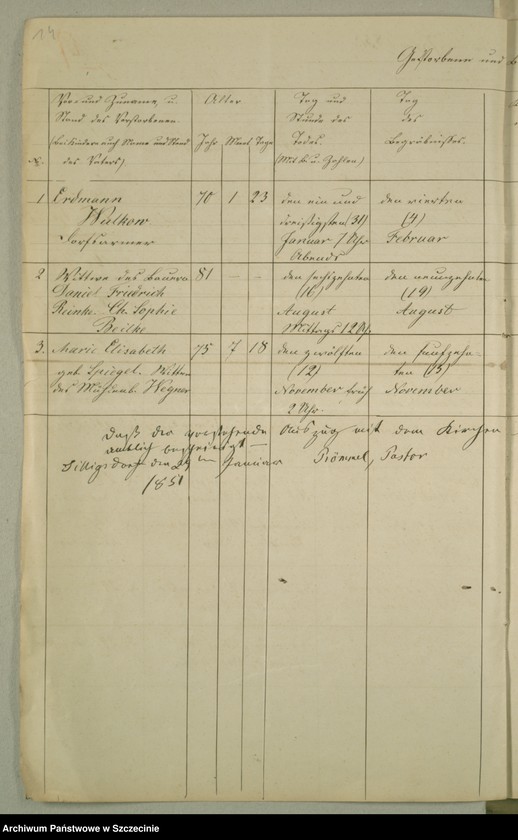 14
Gestorbene und
Vor- und Zuname u.
Stand des Verstorbenen
(bei Kindern auch Name und Stand
des Vaters)
Alter
Jahr Mont Tage
Tag und
Stunde des
Todes.
(Mit B. u. Zahlen)
Tag
des
Begräbnisses.
1 Erdmann
Wulkow
Dorfsarmer
70 1 23
den ein und
dreißigsten (31)
Januar Uhr
Abends
den vierten
(4)
Februar
2 Wittwe des Bauern
Daniel Friedrich
Reinke, Ch. Sophie
Beilke
81 — —
den sechszehnten
(16)
August
Mittags 12 Uhr
den neunzehnten
(19)
August
3. Marie Elisabeth
geb. Spiegel. Wittwe
des Wegner
75 7 18
den zwölften
(12)
November früh
2 Uhr.
den funfzehn-
ten (15)
November
Daß der vorstehende Auszug mit dem Kirchen
amtlich bescheinigt —
den Januar Pastor
1851
Archiwum Państwowe w Szczecinie